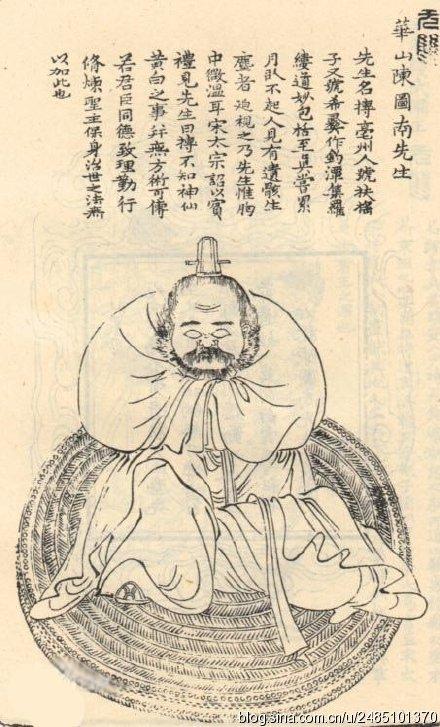 華山陳圖南先生
先生名摶亳州人號扶搖
子又號希夷作釣潭集羅
縷道妙包括至真嘗累
月臥不起人見有遺骸生
塵者迫視之乃先生惟胸
中微溫耳宋太宗詔以賓
禮見先生曰摶不知神仙
黃白之事幷無方術可傳
若君臣同德致理勤行
修煉聖主保身治世之法無
以加此也
blog.sina.com.cn/u/2485101370